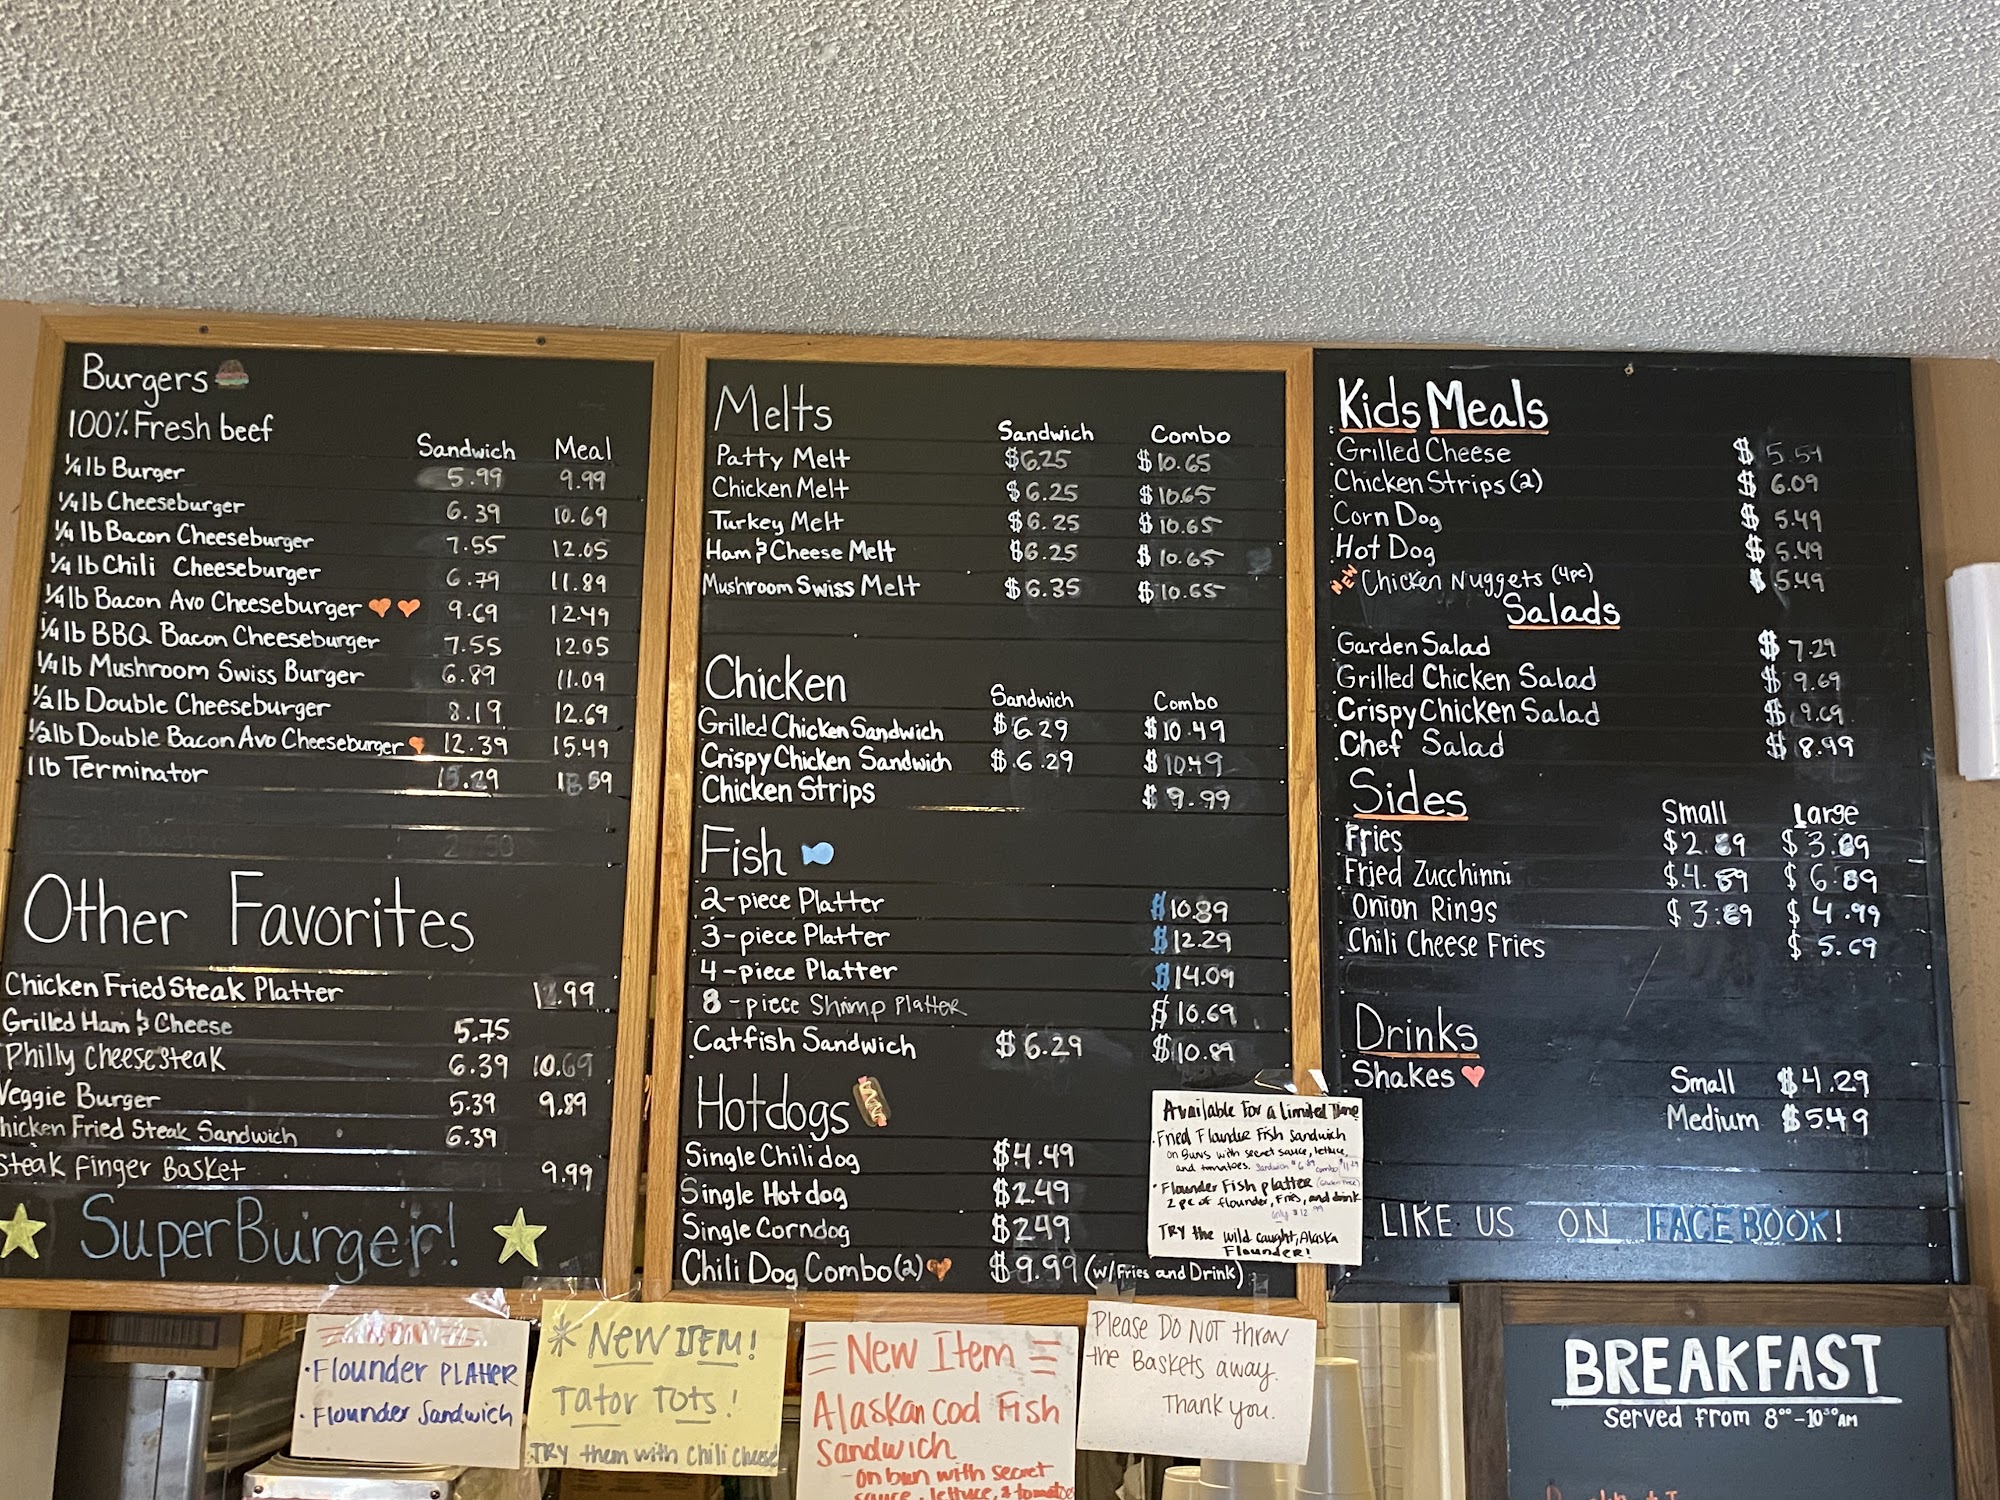 Burgers
100% Fresh beef
Sandwich Meal
1/4 lb Burger 5.99 9.99
1/4 lb Cheeseburger 6.39 10.69
1/4 lb Bacon Cheeseburger 7.55 12.05
1/4 lb Chili Cheeseburger 6.79 11.89
1/4 lb Bacon Avo Cheeseburger 9.69 12.49
1/4 lb BBQ Bacon Cheeseburger 7.55 12.05
1/4 lb Mushroom Swiss Burger 6.89 11.09
1/2 lb Double Cheeseburger 8.19 12.69
1/2 lb Double Bacon Avo Cheeseburger 12.39 15.49
1 lb Terminator 15.29 18.59
Other Favorites
Chicken Fried Steak Platter
Grilled Ham & Cheese 5.75
Philly Cheesesteak 6.39 10.69
Veggie Burger 5.39 9.89
hicken Fried Steak Sandwich 6.39
Steak Finger Basket 9.99
Super Burger!
Melts
Sandwich Combo
Patty Melt $6.25 $10.65
Chicken Melt $6.25 $10.65
Turkey Melt $6.25 $10.65
Ham & Cheese Melt $6.25 $10.65
Mushroom Swiss Melt $6.35 $10.65
Chicken
Sandwich Combo
Grilled Chicken Sandwich $6.29 $10.49
Crispy Chicken Sandwich $6.29 $10.49
Chicken Strips $9.99
Fish
2-piece Platter $10.89
3-piece Platter $12.29
4-piece Platter $14.09
8-piece Shrimp Platter $10.69
Catfish Sandwich $6.29 $10.89
Hotdogs
Single Chilidog $4.49
Single Hotdog $2.49
Single Corndog $2.49
Chili Dog Combo(2) $9.99 (w/Fries and Drink)
Available For a limited Time
• Fried Flounder Fish Sandwich
on Buns with secret sauce, lettuce,
and tomatoes. Sandwich $6.89 combo $11.29
• Flounder Fish platter (Gluten Free)
2 pc of flounder, Fries, and drink
only $12.99
TRY the wild caught, Alaska
Flounder!
Kids Meals
Grilled Cheese $5.59
Chicken Strips (2) $6.09
Corn Dog $5.49
Hot Dog $5.49
NEW Chicken Nuggets (4pc) $5.49
Salads
Garden Salad $7.29
Grilled Chicken Salad $9.69
Crispy Chicken Salad $9.69
Chef Salad $8.99
Sides
Small Large
Fries $2.89 $3.89
Fried Zucchinni $4.89 $6.89
Onion Rings $3.89 $4.99
Chili Cheese Fries $5.69
Drinks
Shakes Small $4.29
Medium $5.49
LIKE US ON FACEBOOK!
NEW
• Flounder PLATTER
• Flounder Sandwich
* NEW ITEM!
Tator Tots!
TRY them with chili cheese
New Item
Alaskan Cod Fish
Sandwich
- on bun with secret
sauce, lettuce, & tomatoes
Please DO NOT throw
the Baskets away.
Thank you.
BREAKFAST
Served from 8:00-10:30 AM